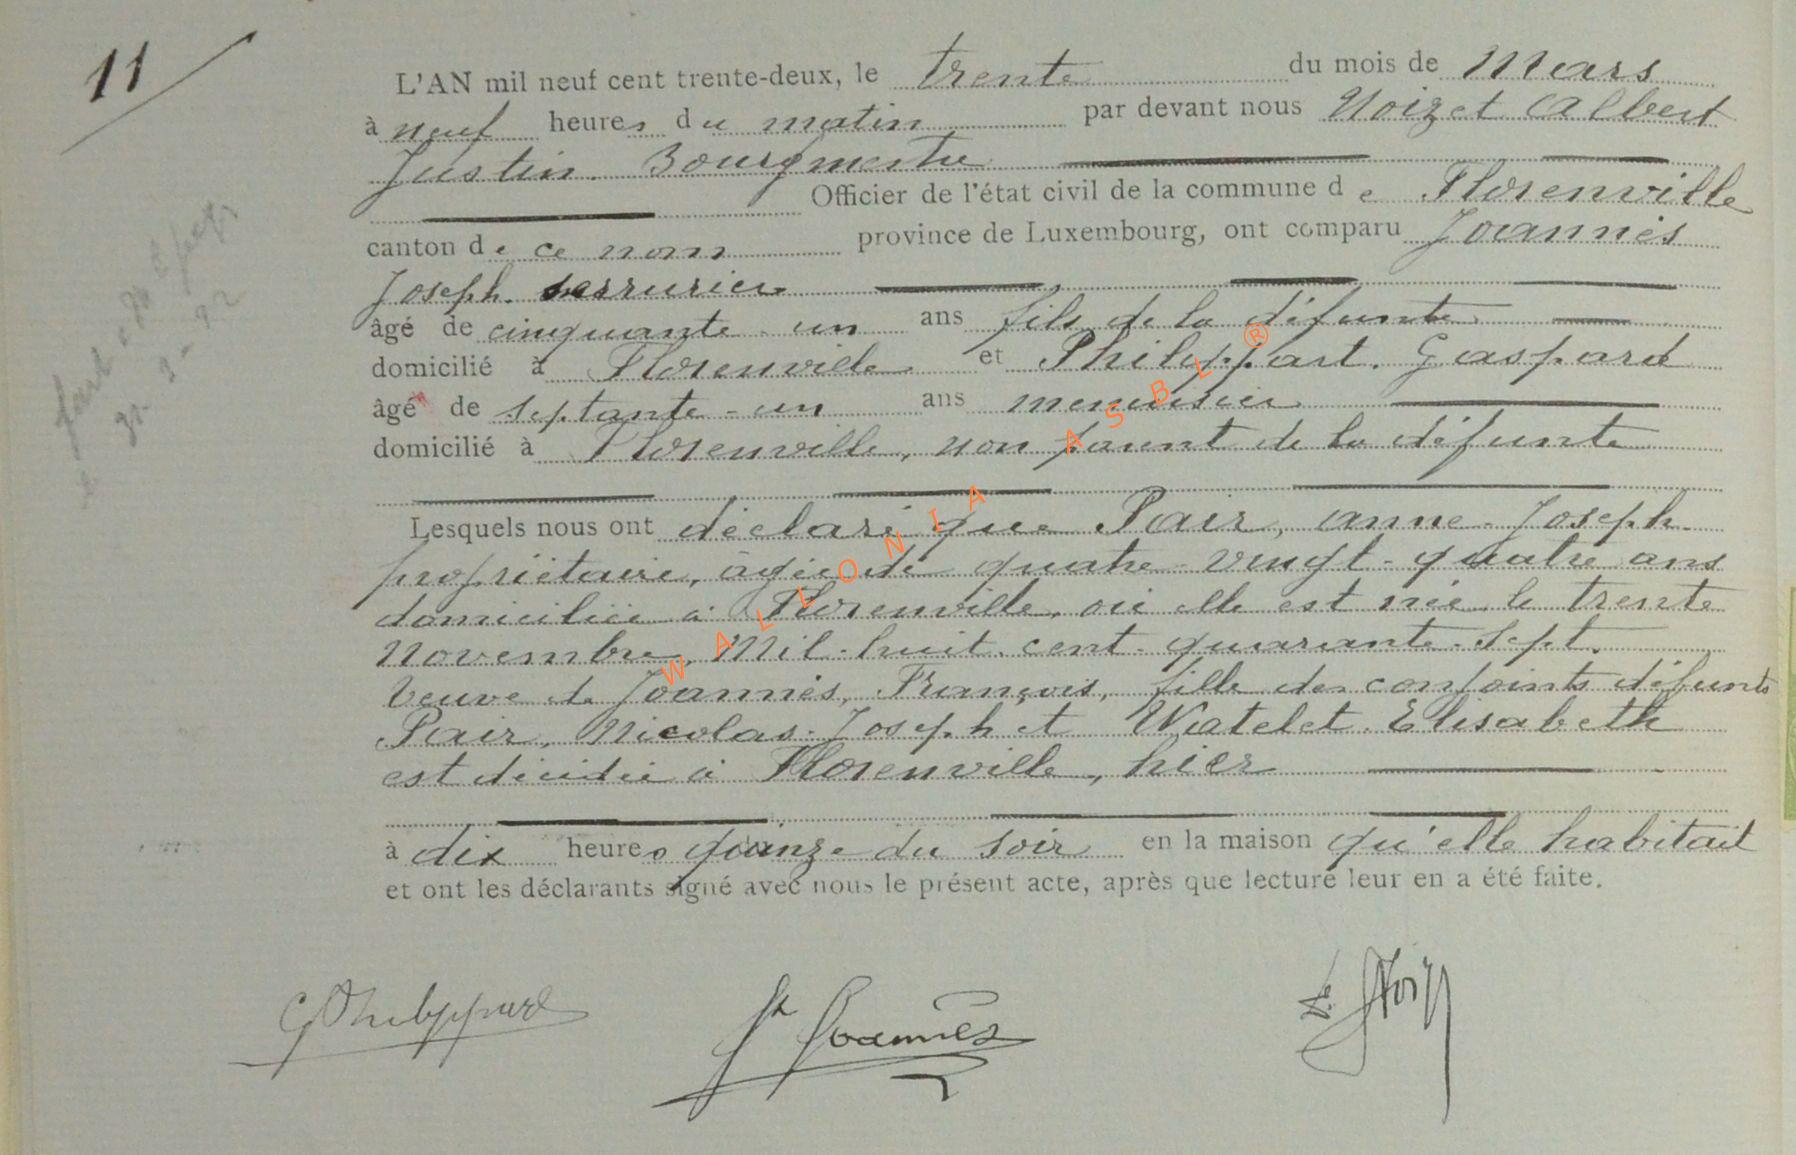 11
L'AN mil neuf cent trente-deux, le trente du mois de Mars
à neuf heures du matin par devant nous Noizet Albert
Justin. Bourgmestre
Officier de l'état civil de la commune de Florenville
canton de ce nom province de Luxembourg, ont comparu Joannès
Joseph. serrurier
âgé de cinquante-un ans fils de la défunte
domicilié à Florenville et Philippart. Gaspard
âgé de septante-un ans menuisier
domicilié à Florenville, non parent de la défunte
Lesquels nous ont déclaré que Pair, anne-Joseph
propriétaire, âgée de quatre-vingt-quatre ans
domiciliée à Florenville, où elle est née le trente
Novembre, Mil-huit-cent-quarante-sept.
Veuve de Joannès, François, fille des conjoints défunts
Pair, Nicolas-Joseph et Watelet. Elisabeth
est décédée à Florenville, hier
à dix heures quinze du soir en la maison qu'elle habitait
et ont les déclarants signé avec nous le présent acte, après que lecture leur en a été faite.
G Philippart
Jh Joannès
WALLONIA ASBL ®